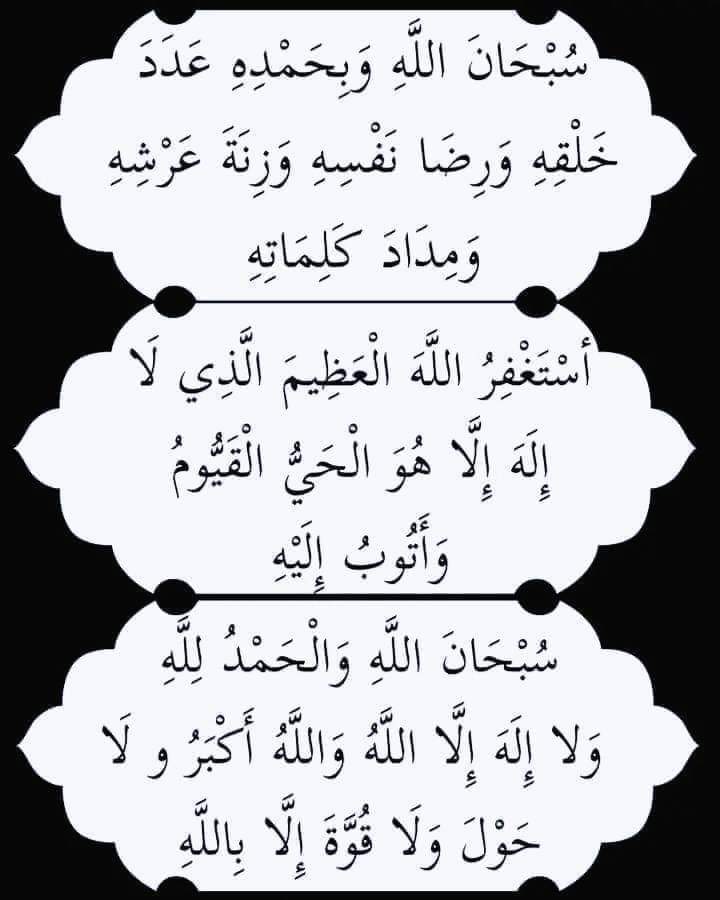 سُبْحَانَ اللَّهِ وَبِحَمْدِهِ عَدَدَ
خَلْقِهِ وَرِضَا نَفْسِهِ وَزِنَةَ عَرْشِهِ
وَمِدَادَ كَلِمَاتِهِ
أسْتَغْفِرُ اللَّهَ الْعَظِيمَ الَّذِي لَا
إِلَهَ إِلَّا هُوَ الْحَيُّ الْقَيُّومُ
وَأَتُوبُ إِلَيْهِ
سُبْحَانَ اللَّهِ وَالْحَمْدُ لِلَّهِ
وَلا إِلَهَ إِلَّا اللَّهُ وَاللَّهُ أَكْبَرُ و لَا
حَوْلَ وَلَا قُوَّةَ إِلَّا بِاللَّهِ